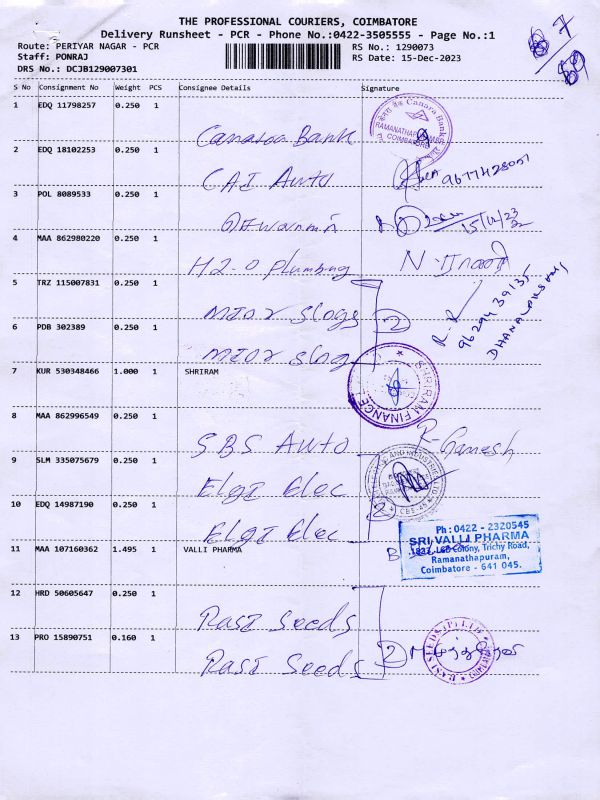 THE PROFESSIONAL COURIERS, COIMBATORE
Delivery Runsheet - PCR - Phone No.:0422-3505555 - Page No.:1
Route: PERIYAR NAGAR - PCR
Staff: PONRAJ
DRS No.: DCJB129007301
RS No.: 1290073
RS Date: 15-Dec-2023
7
89
S No Consignment No Weight PCS Consignee Details Signature
1 EDQ 11798257 0.250 1
Canara Bank
Canara Bank
RAMANATHAPURAM BR
COIMBATORE
2 EDQ 18102253 0.250 1
CAI Auto 9677428051
3 POL 8089533 0.250 1
15/12/23
4 MAA 862980220 0.250 1
H2-O Plumbing
5 TRZ 115007831 0.250 1
Mior Slogs 2
R.R
9629439135
DHANALAKSHMI
6 PDB 302389 0.250 1
Mior Slog
7 KUR 530348466 1.000 1 SHRIRAM
SHRIRAM FINANCE
8 MAA 862996549 0.250 1
SBS Auto R-Ganesh
9 SLM 335075679 0.250 1
Elgi Elec 2
10 EDQ 14987190 0.250 1
Elgi Elec
11 MAA 107160362 1.495 1 VALLI PHARMA
Ph : 0422 - 2320545
SRI VALLI PHARMA
Colony, Trichy Road,
Ramanathapuram,
Coimbatore - 641 045.
12 HRD 50605647 0.250 1
Rasi Seeds 2
13 PRO 15890751 0.160 1
Rasi Seeds
RASI SEEDS (P) LTD